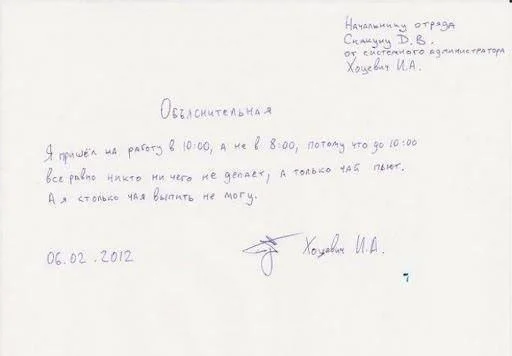 Начальнику отряда
Скакуну Д.В.
от системного администратора
Хоцевич И.А.
Объяснительная
Я пришёл на работу в 10:00, а не в 8:00, потому что до 10:00
все равно никто ни чего не делает, а только чай пьют.
А я столько чая выпить не могу.
06.02.2012
Хоцевич И.А.
7